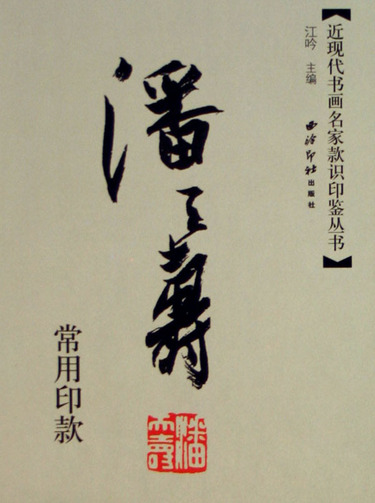 【近现代书画名家款识印鉴丛书】
江吟 主编
西泠印社出版社
潘天寿
常用印款
潘天壽